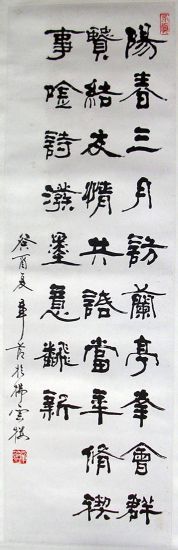 陽春三月訪蘭亭幸會群
賢結友情共話當年脩禊
事吟詩潑墨意翻新
癸酉夏 章